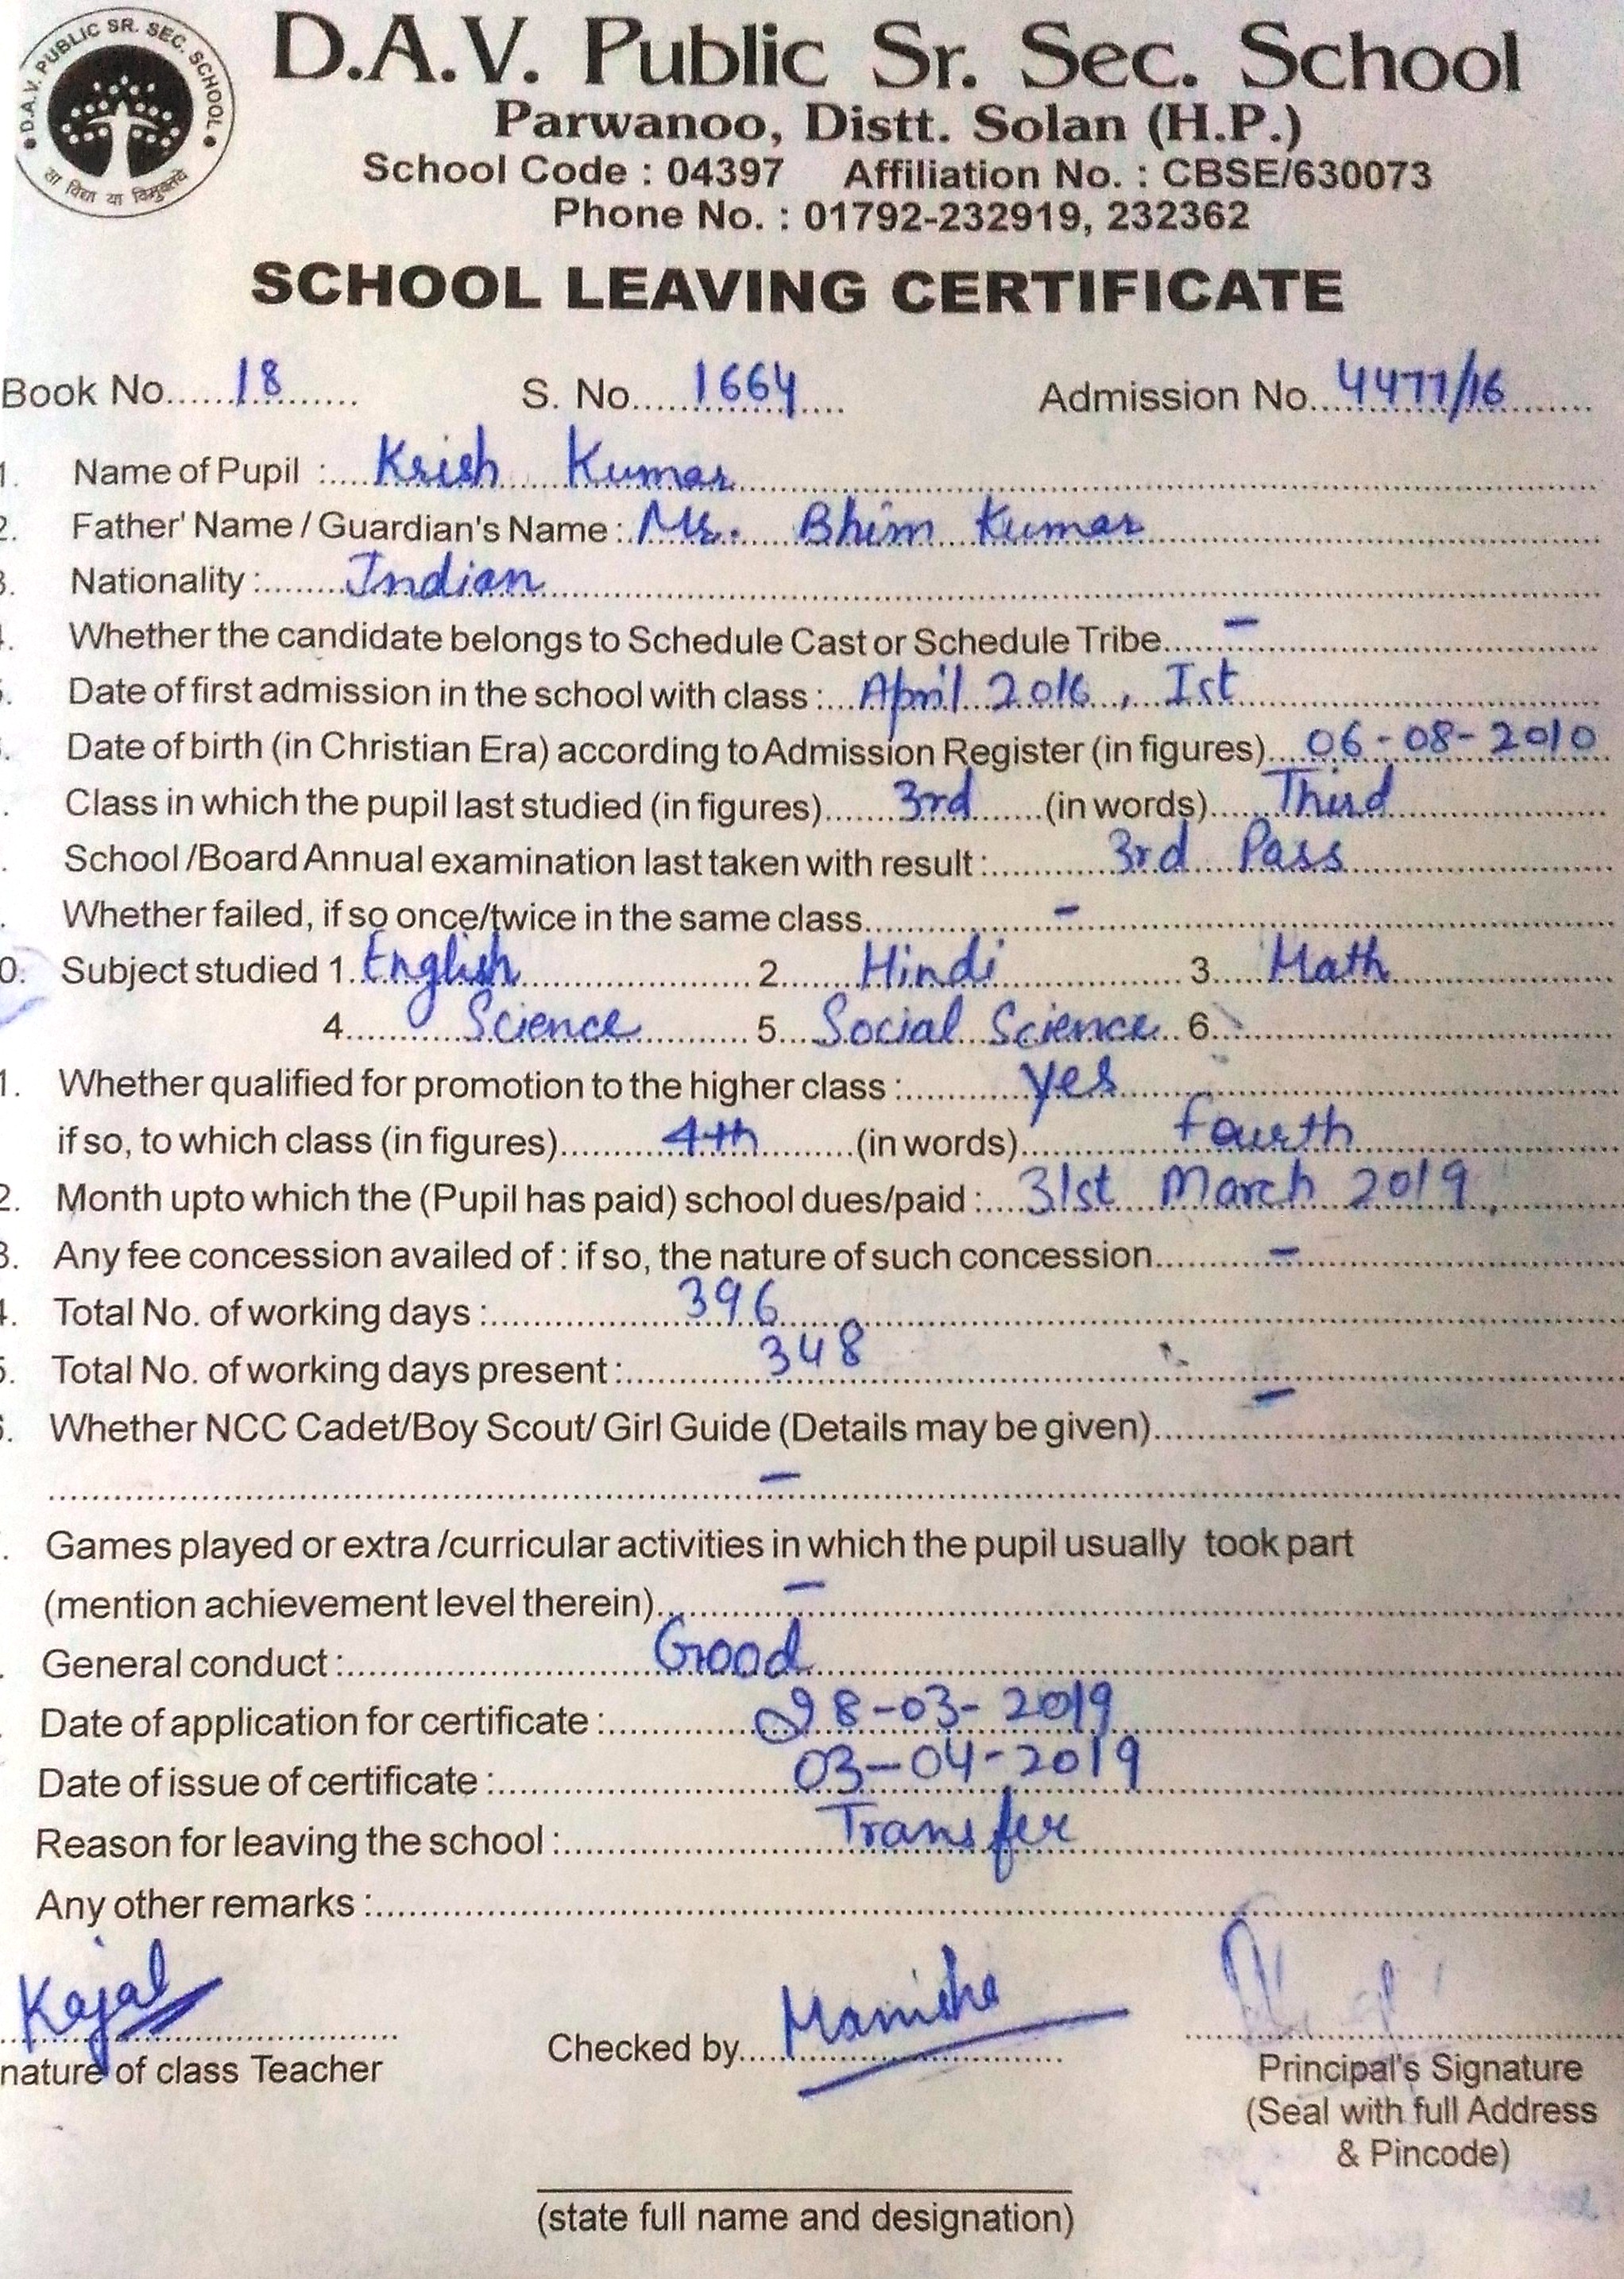 D.A.V. PUBLIC SR. SEC. SCHOOL
सा विद्या या विमुक्तये
D.A.V. Public Sr. Sec. School
Parwanoo, Distt. Solan (H.P.)
School Code : 04397 Affiliation No. : CBSE/630073
Phone No. : 01792-232919, 232362
SCHOOL LEAVING CERTIFICATE
Book No......18........... S. No.....1664.... Admission No...4477/16........
1. Name of Pupil :....Krish Kumar
2. Father' Name / Guardian's Name : Mr. Bhim Kumar
3. Nationality :........Indian
4. Whether the candidate belongs to Schedule Cast or Schedule Tribe...... –
5. Date of first admission in the school with class :...April 2016, Ist
. Date of birth (in Christian Era) according to Admission Register (in figures)...06-08-2010
. Class in which the pupil last studied (in figures).......3rd.......(in words).....Third
. School /Board Annual examination last taken with result :...........3rd Pass
. Whether failed, if so once/twice in the same class................ –
0. Subject studied 1. English 2. Hindi 3. Math
4. Science 5. Social Science 6
1. Whether qualified for promotion to the higher class :...........yes
if so, to which class (in figures).........4th.........(in words)............fourth
2. Month upto which the (Pupil has paid) school dues/paid :....31st March 2019,
3. Any fee concession availed of : if so, the nature of such concession.......... –
4. Total No. of working days :..................396
5. Total No. of working days present :............348
6. Whether NCC Cadet/Boy Scout/ Girl Guide (Details may be given)........ –
–
. Games played or extra /curricular activities in which the pupil usually took part
(mention achievement level therein).......... –
. General conduct :...........................Good
. Date of application for certificate :.............28-03-2019
Date of issue of certificate :......................03-04-2019
Reason for leaving the school :....................Transfer
Any other remarks :
Kajal Manisha
nature of class Teacher Checked by Principal's Signature
(Seal with full Address
& Pincode)
(state full name and designation)